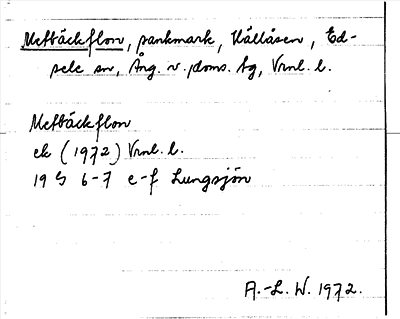 Metbäckflon, sankmark, Källåsen, Ed-
sele sn, Ång. v. doms. tg, Vrnl. l.
Metbäckflon
ek (1972) Vrnl. l.
19 G 6-7 e-f Lungsjön
A.-L. W. 1972.